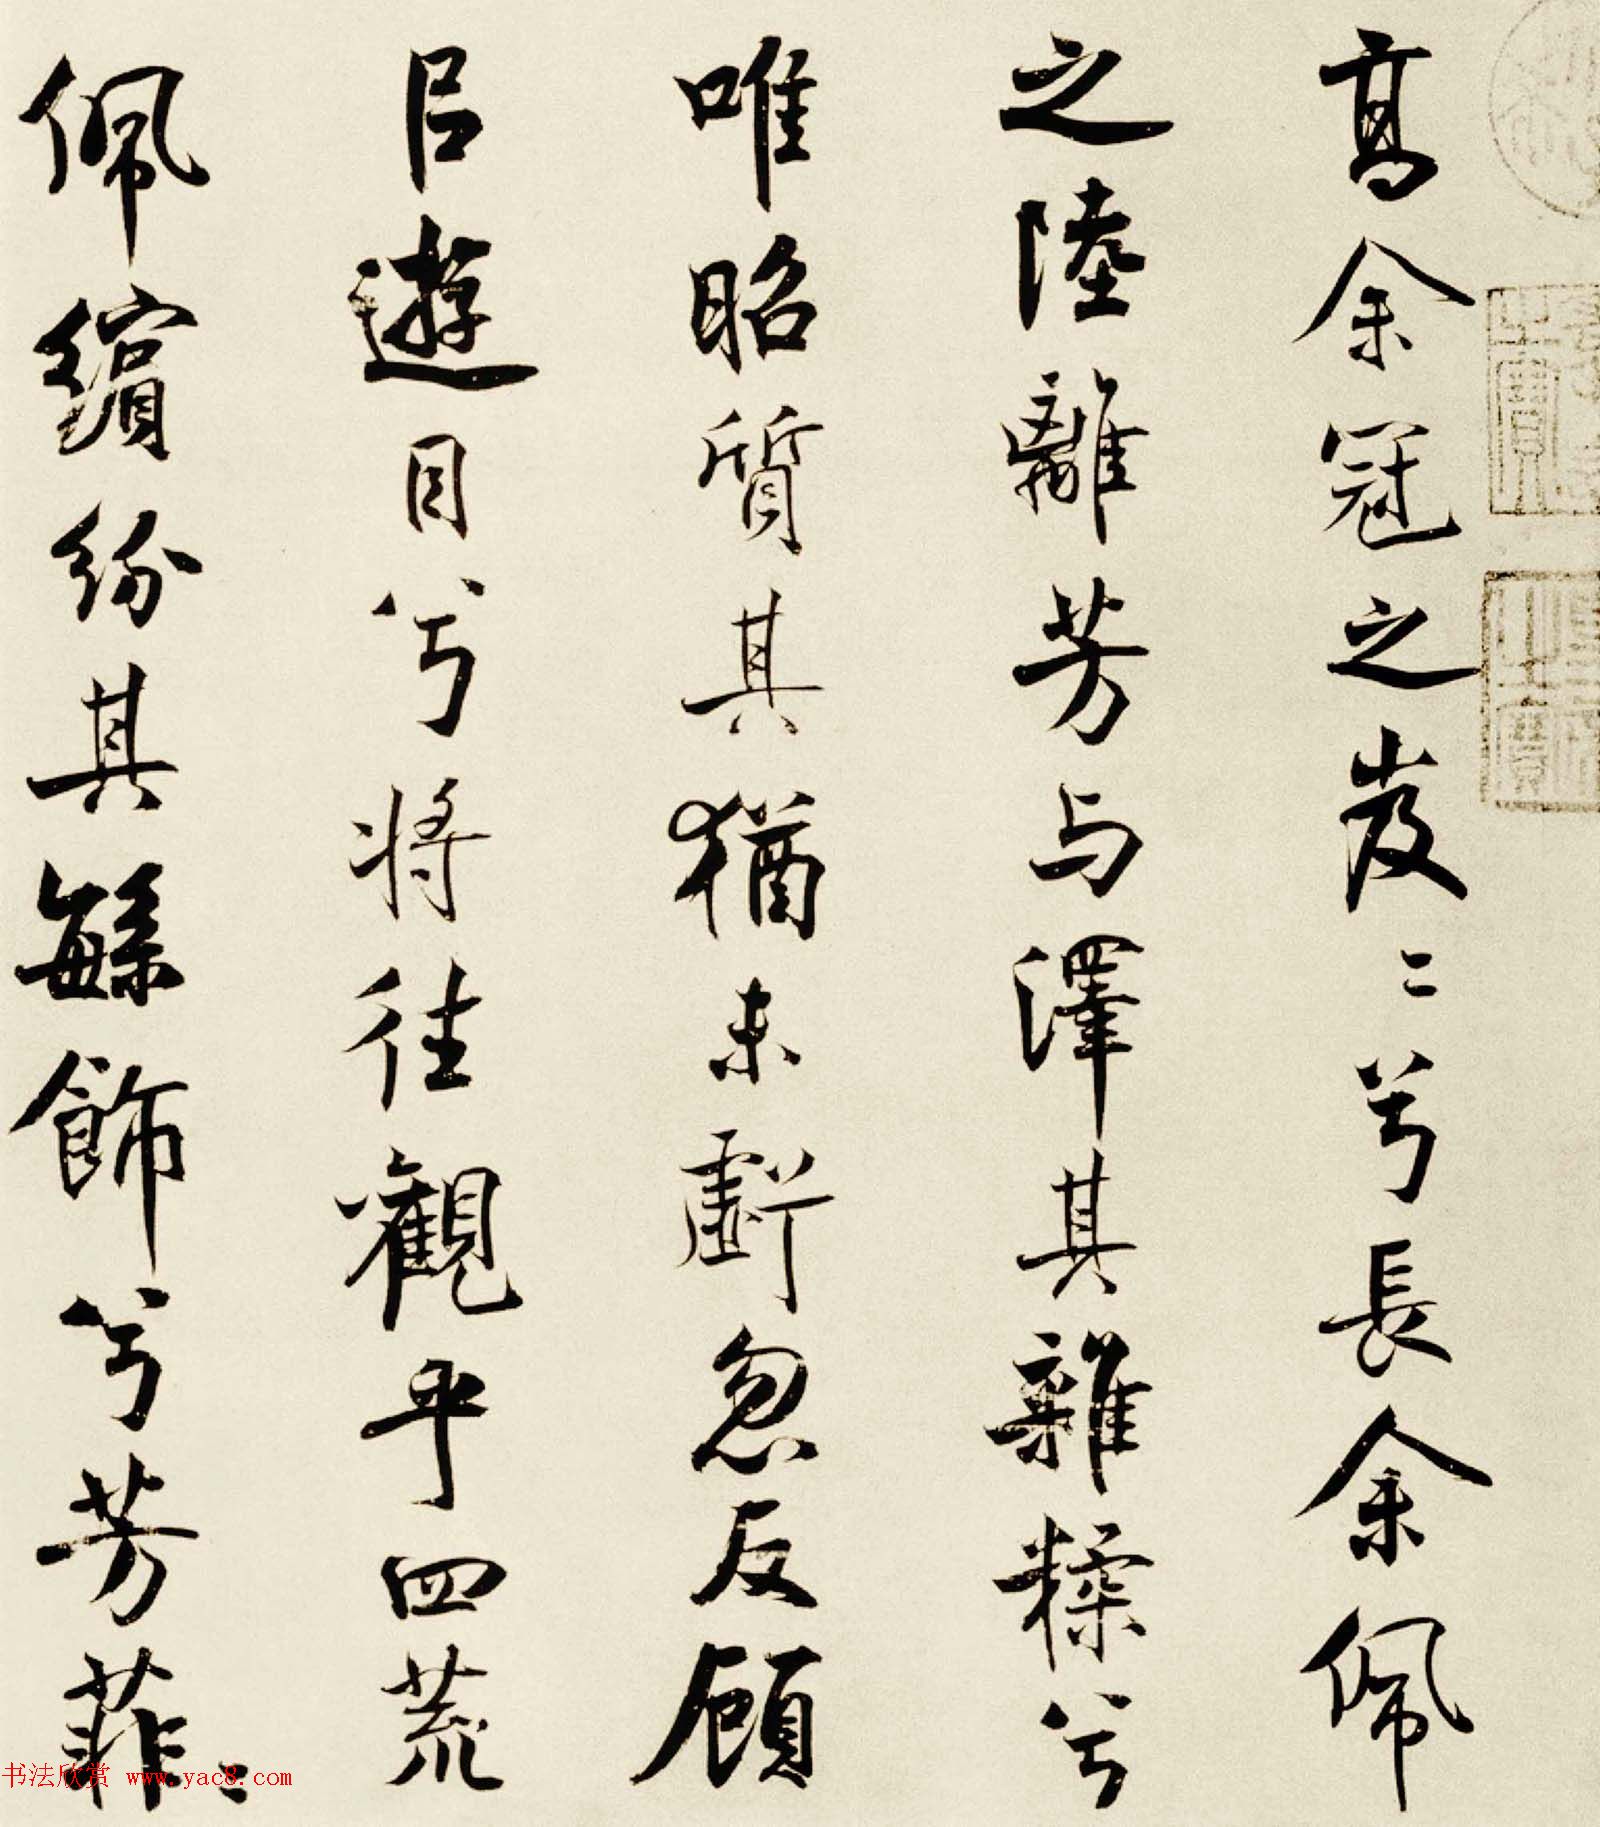 高余冠之岌〻兮長余佩
之陸離芳与澤其雜糅兮
唯昭質其猶未虧忽反顧
㠯遊目兮將往觀乎四荒
佩繽紛其繁飾兮芳菲〻
书法欣赏 www.yac8.com